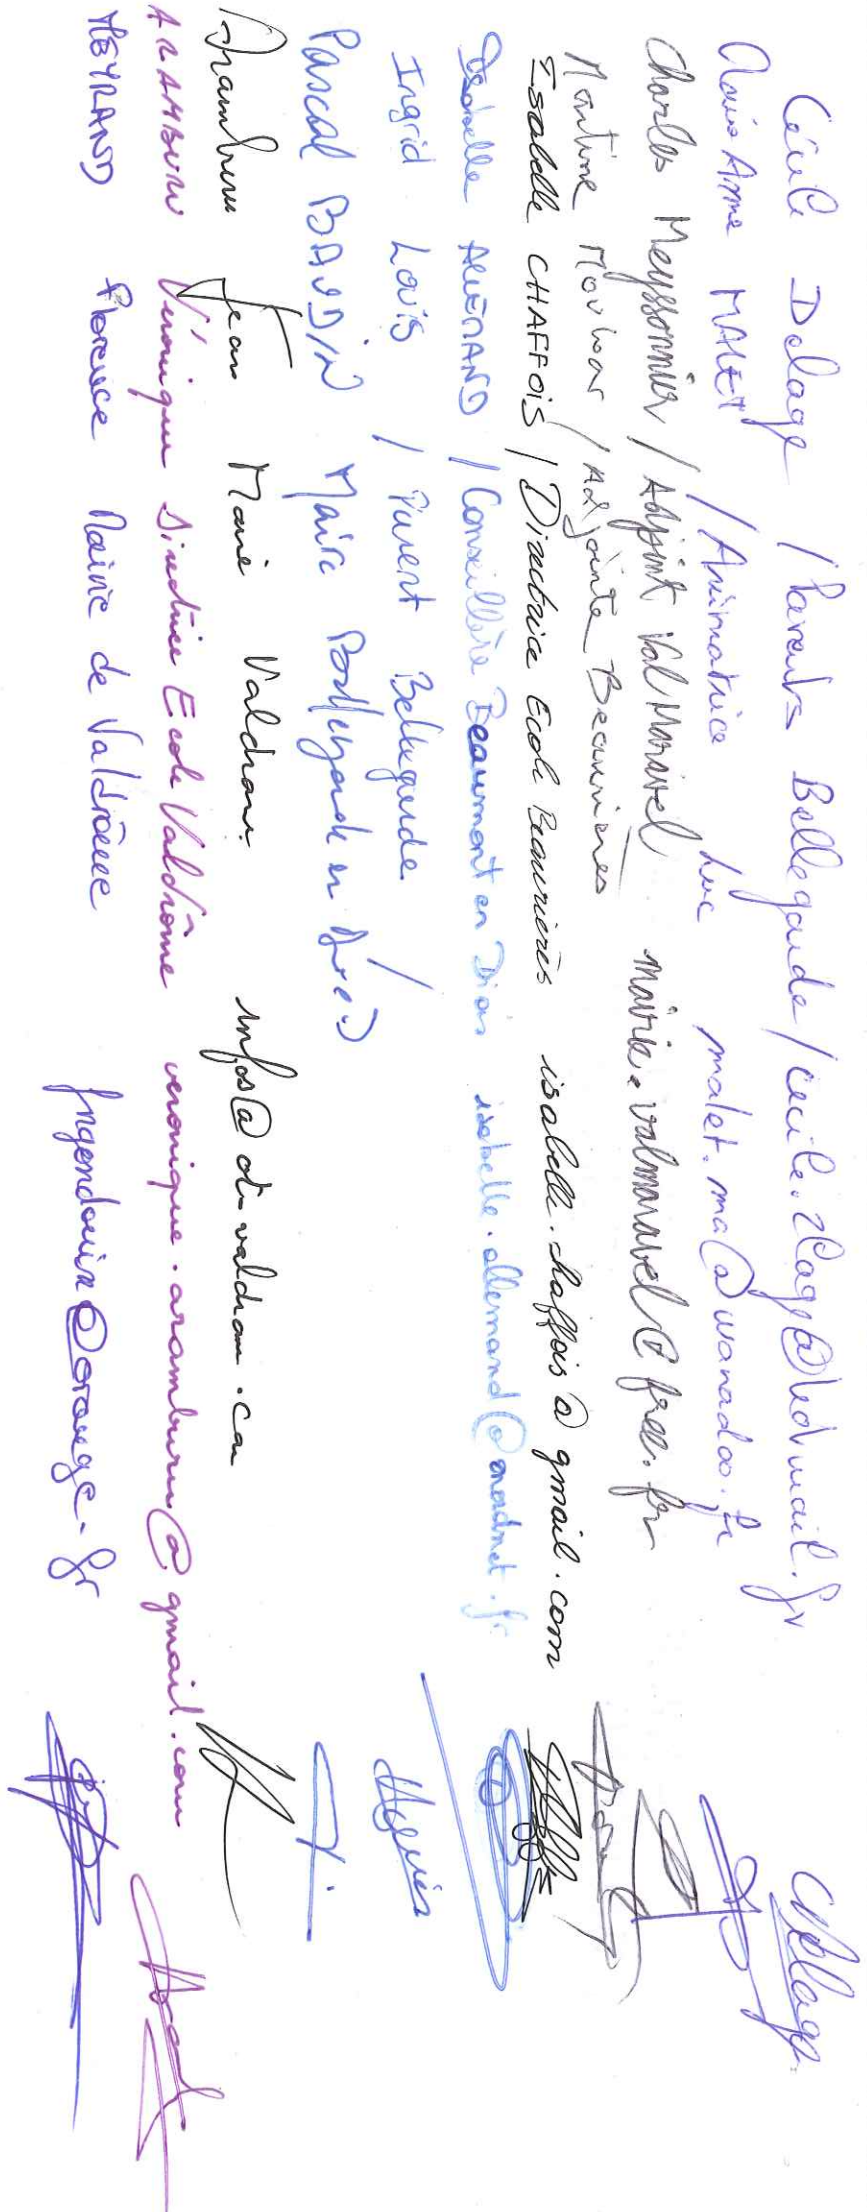 Cécile Delage / Parents Bellegarde / cecile.dlage@hotmail.fr
Marie Anne MALET / Animatrice Luc malet.ma@wanadoo.fr
Charles Meyssonnier / Adjoint Val Maravel mairie.valmaravel@free.fr
Martine Mouhou / Adjointe Beaurières
Isabelle CHAFFOIS / Directrice Ecole Beaurières isabelle.chaffois@gmail.com
Isabelle ALLEMAND / Conseillère Beaumont en Diois isabelle.allemand@nordnet.fr
Ingrid Louis / Parent Bellegarde /
Pascal BAUDIN Maire Bellegarde en Diois
Aramburu Jean Marie Valdrome infos@ot-valdrome.com
ARAMBURU Véronique Directrice Ecole Valdrôme veronique.aramburu@gmail.com
MEYRAND Florence Mairie de Valdrôme